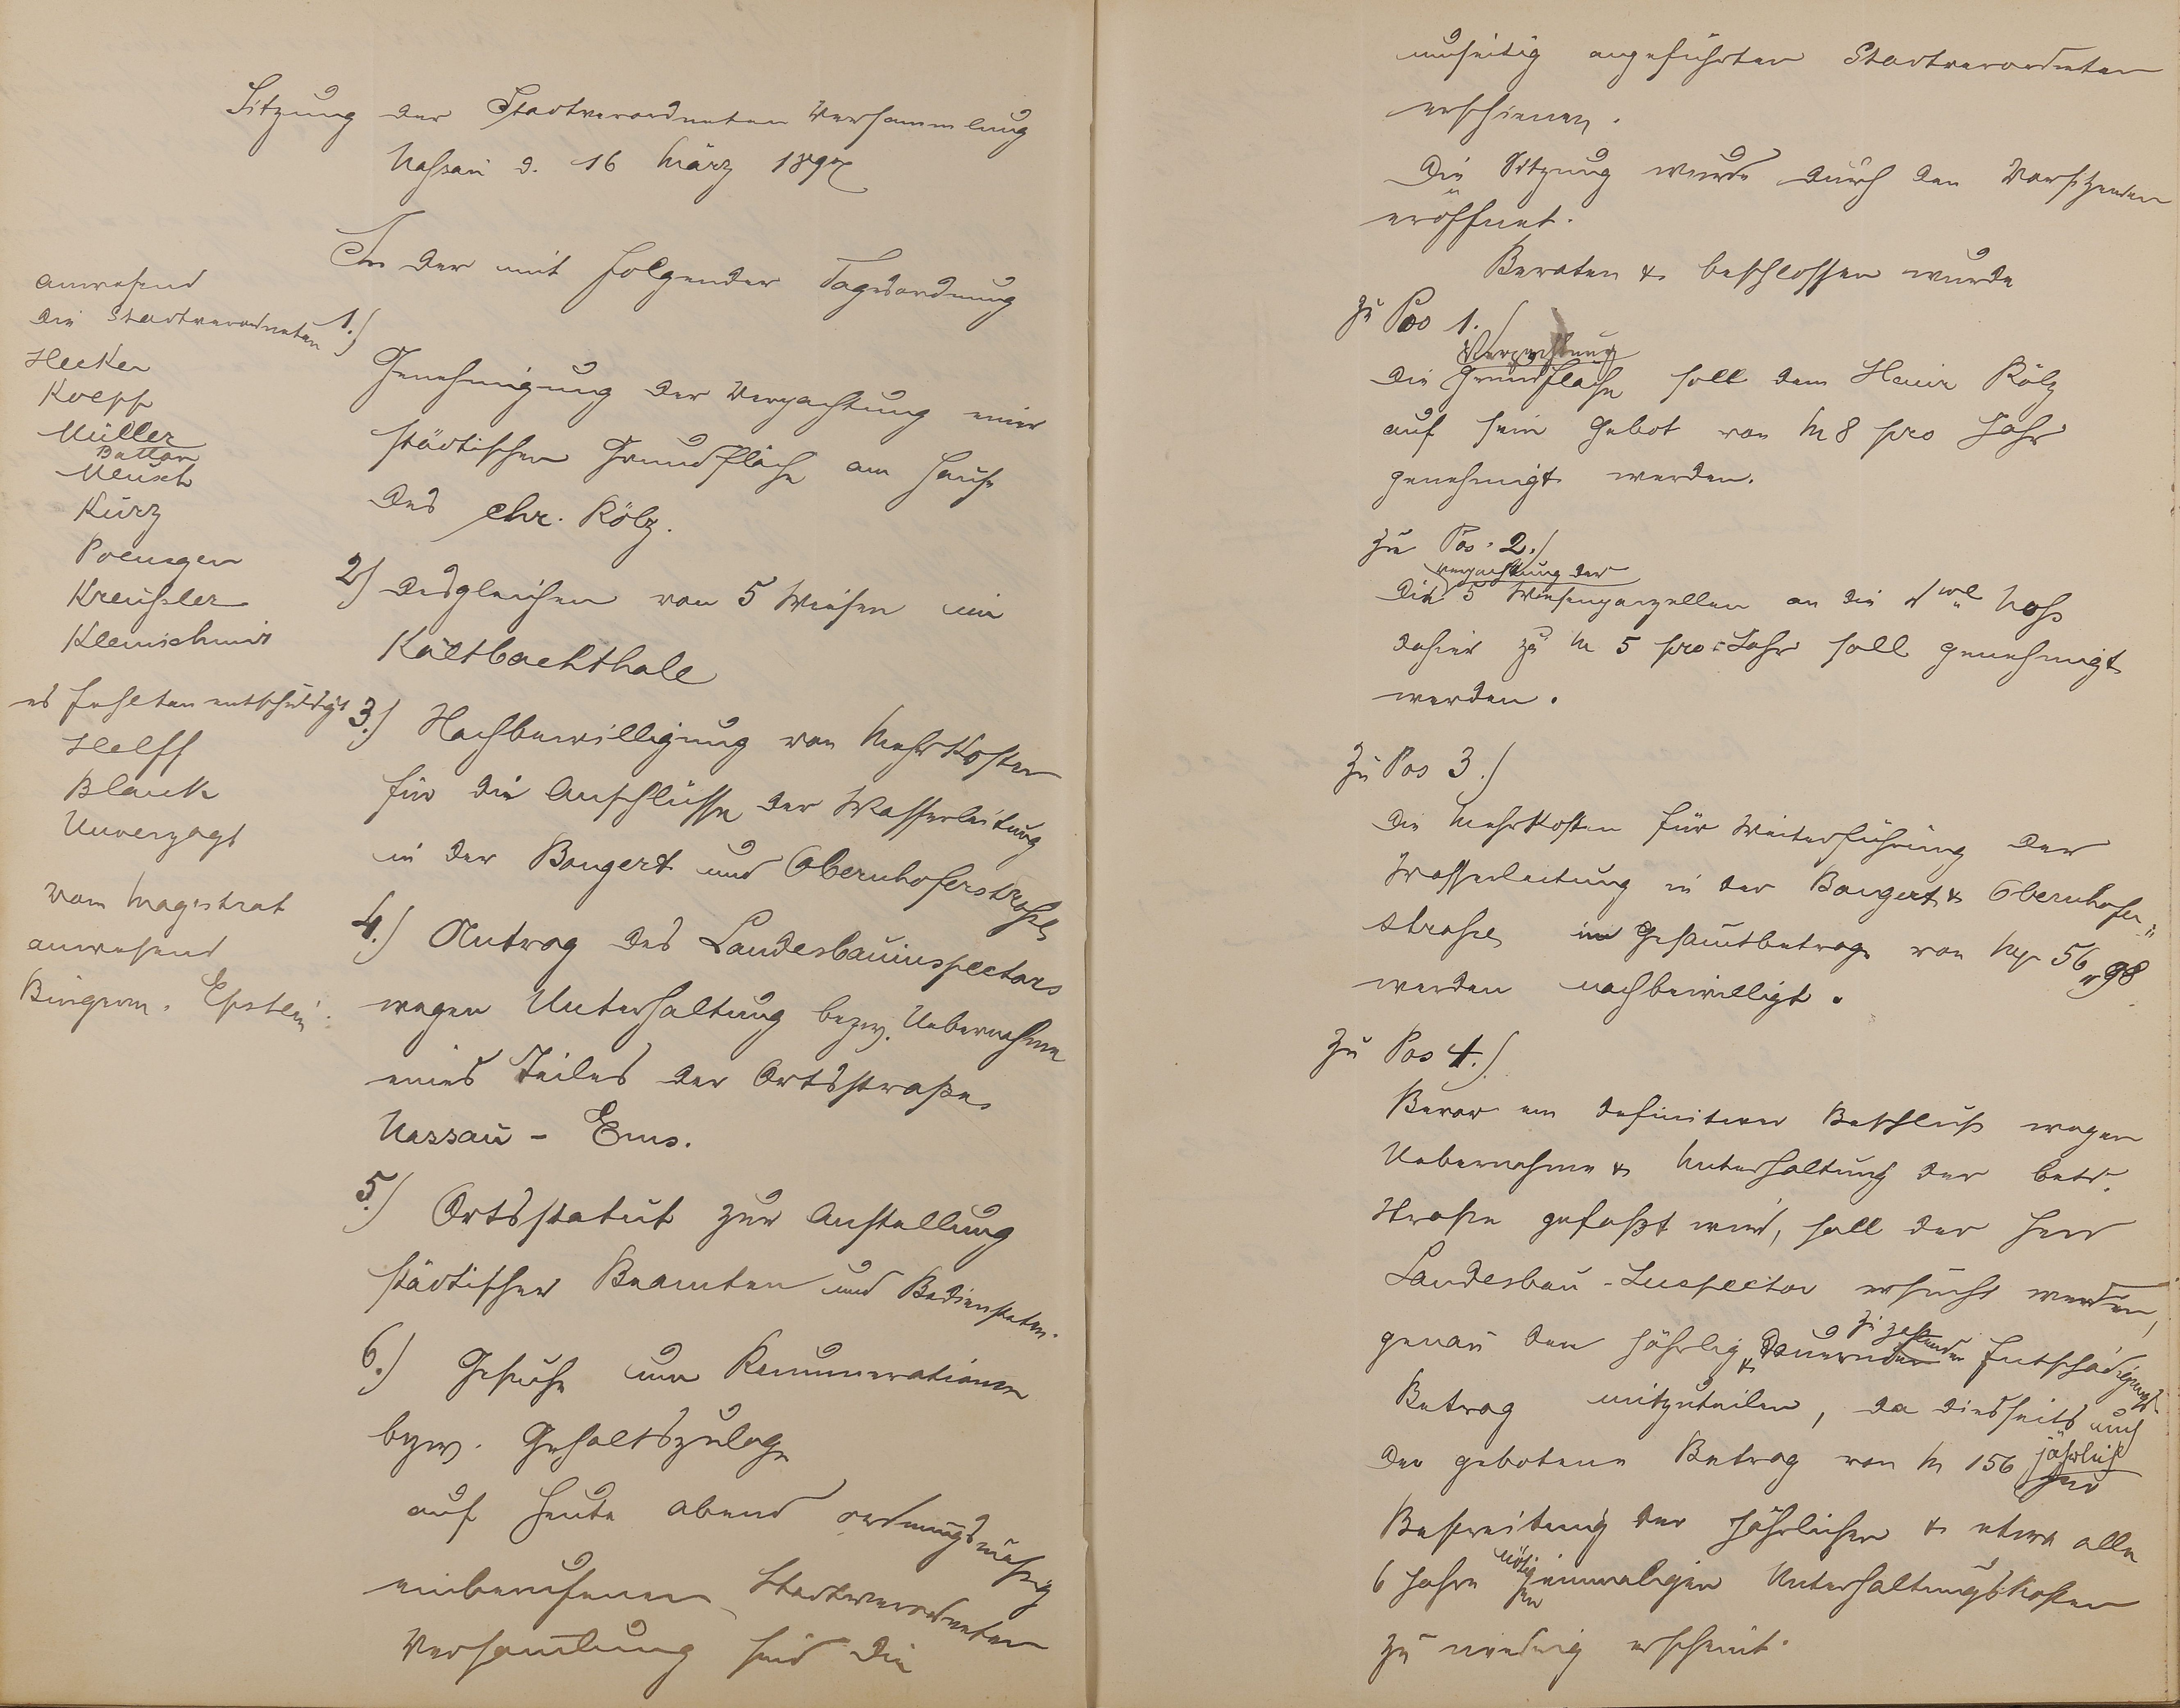 Sitzung der Stadtverordneten Versammlung
Nassau d. 16 März 1897
anwesend
die Stadtverordneten
Hecker
Koepp
Müller
Batton
Meusch
Kurz
Poensgen
Kreußler
Kleinschmidt
es fehlten entschuldigt
Helff
Blank
Unverzagt
vom Magistrat
anwesend
Bürgerm. Epstein.
In der mit folgender Tagesordnung
1.)
Genehmigung der Verpachtung einer
städtischen Grundfläche am Hause
des Chr. Kölz.
2) desgleichen von 5 Wiesen im
Kaltbachthale
3.) Nachbewilligung von Mehrkosten
für die Anschlüsse der Wasserleitung
in der Bongert und Obernhoferstraße
4.) Antrag des Landesbauinspectors
wegen Unterhaltung bezw. Uebernahme
eines Teiles der Ortsstraße
Nassau - Ems.
5.) Ortsstatut zur Anstellung
städtischer Beamten und Bediensteten.
6.) Gesuche um Remunerationen
bzw. Gehaltszulage
auf heute abend ordnungsmäßig
einberufenen Stadtverordneten
Versamlung sind die
umseitig angeführten Stadtverordneten
erschienen.
Die Sitzung wurde durch den Vorsitzenden
eröffnet.
Beraten & beschlossen wurde
zu Pos 1.)
Verpachtung
die Grundfläche soll dem Kölz
auf sein Gebot von M 8 pro Jahr
genehmigt werden.
zu Pos. 2.)
Verpachtung der
Die 5 Wiesenparzellen an die
dahier zu M 5 pro Jahr soll genehmigt
werden.
zu Pos 3.)
Die Mehrkosten für Weiterführung der
Wasserleitung in der Bongert & Obernhofer-
straße im Gesamtbetrage von Mk 56,98
werden nachbewilligt.
zu Pos 4.)
Bevor ein definitiver Beschluß wegen
Uebernahme & Unterhaltung der betr.
Straße gefaßt wird, soll der Herr
Landesbau-Inspector ersucht werden,
zu zahlenden
genau den jährlig & dauernden Entschädigungs
Betrag mitzuteilen, da diesseits auch
der gebotene Betrag von M 156 jährlich
zur
Bestreitung der jährlichen & etwa alle
6 Jahre nötigen einmaligen Unterhaltungskosten
zu niedrig erscheint.